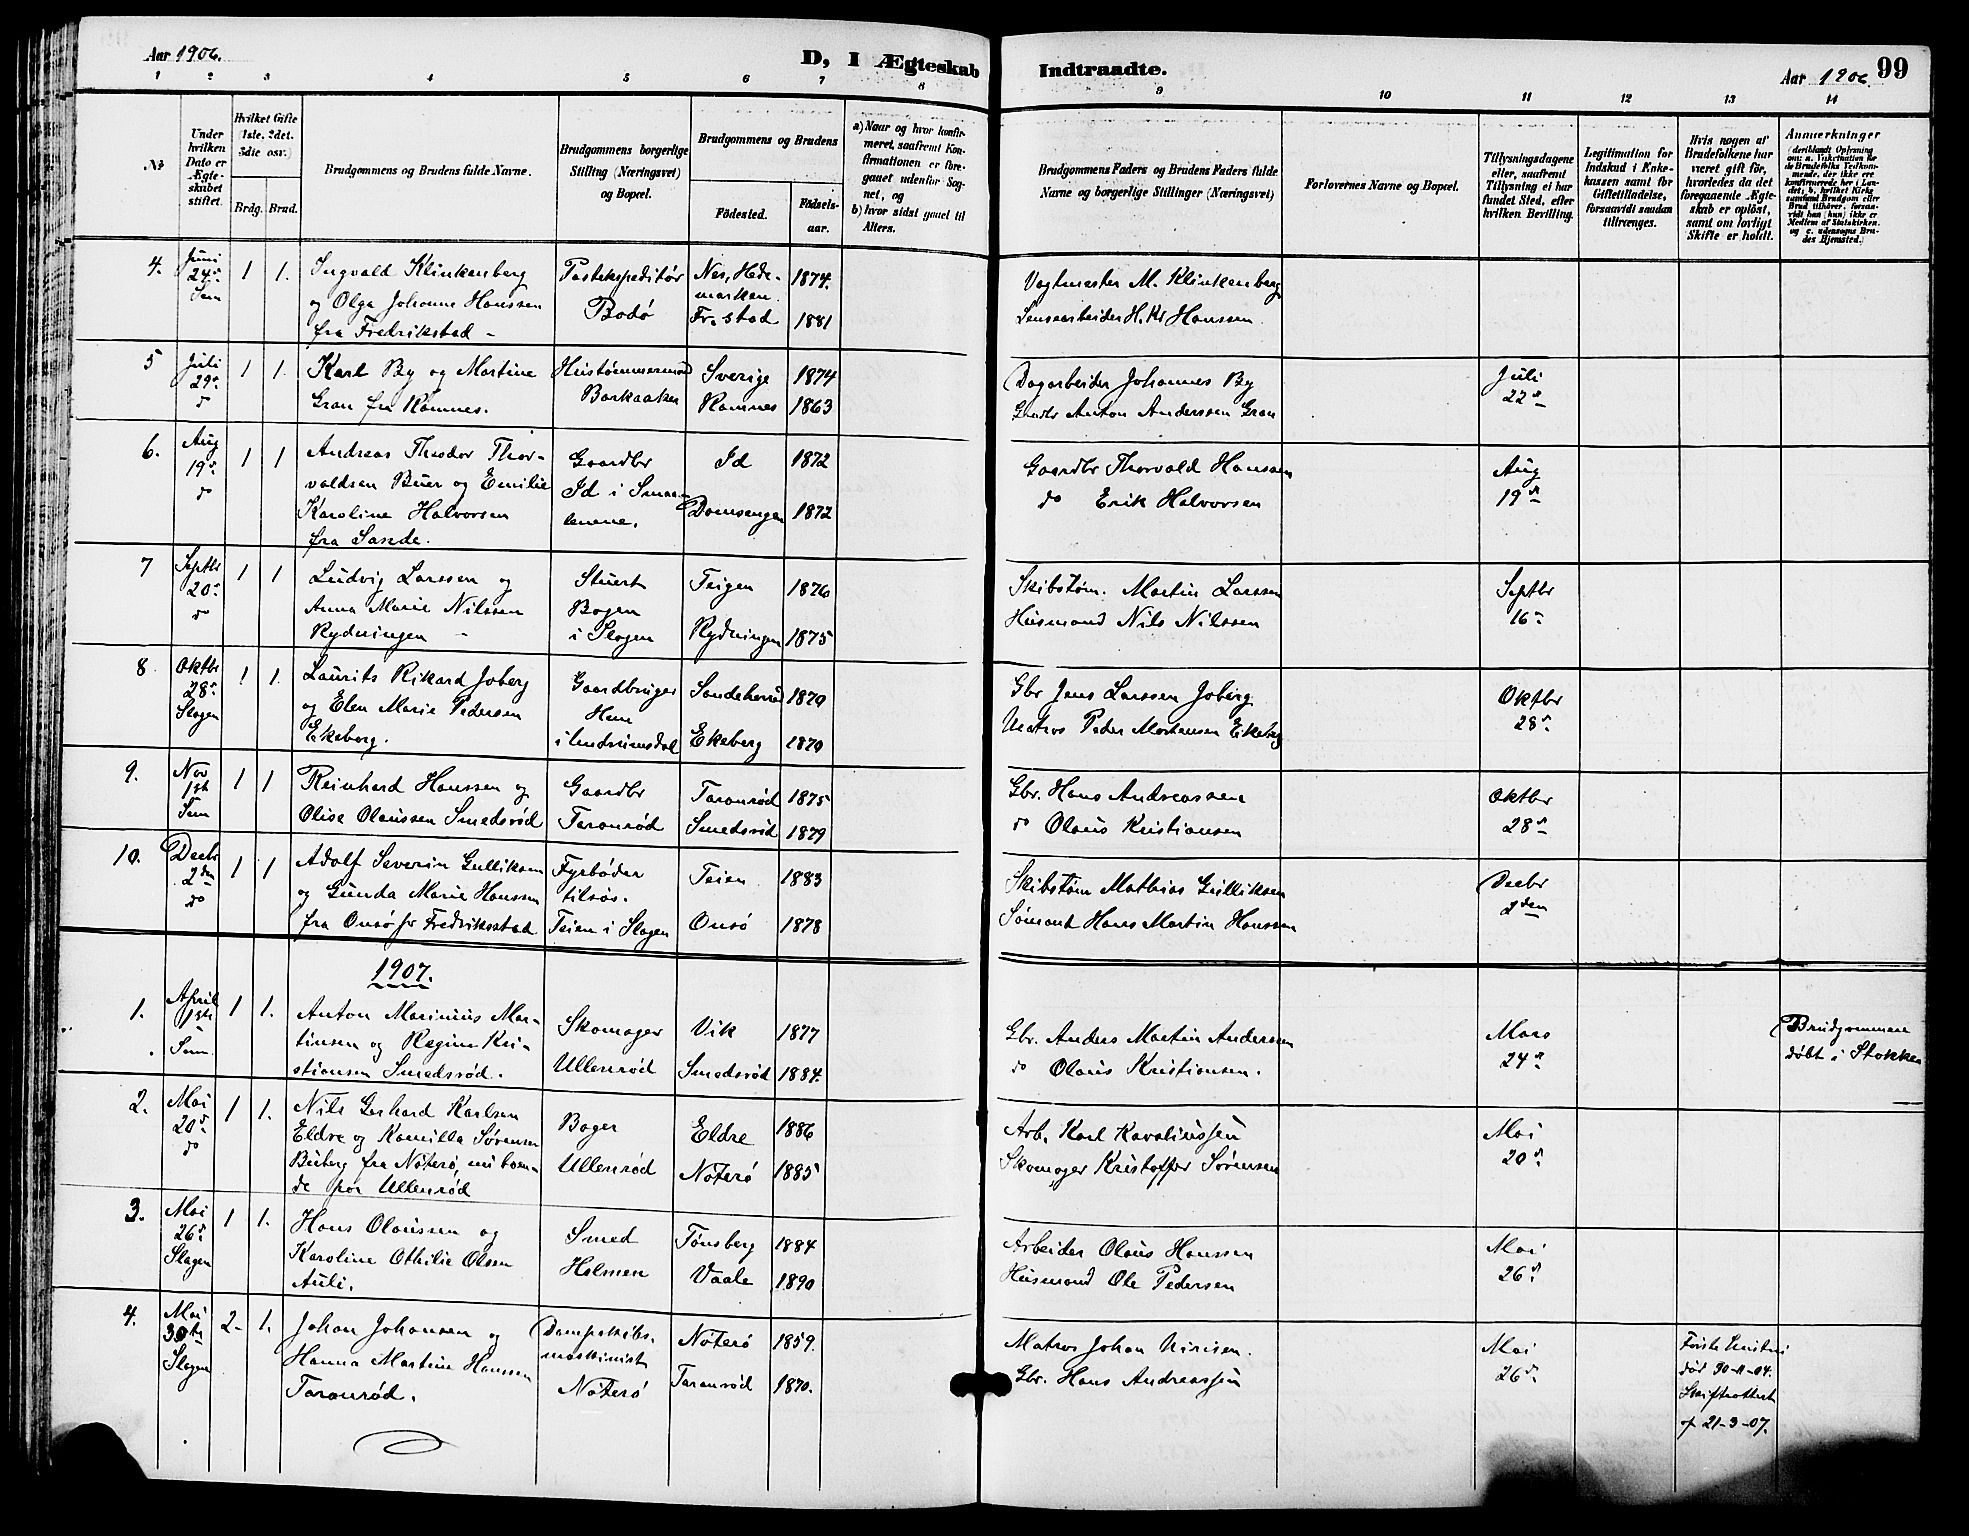 Aar 1906.
D, I Ægteskab
Indtraadte.
Aar 1906
99
1 2 3 4 5 6 7 8 9 10 11 12 13 14
№
Under
hvilken
Dato er
Ægte-
skabet
stiftet.
Hvilket Gifte
(1ste, 2det,
3die osv.)
Brdg.
Brud.
Brudgommens og Brudens fulde Navne.
Brudgommens borgerlige
Stilling (Næringsvei)
og Bopæl.
Brudgommens og Brudens
Fødested.
Fødsels-
aar.
a) Naar og hvor konfir-
meret, saafremt Kon-
firmationen er fore-
gaaet udenfor Sog-
net, og
b) hvor sidst gaaet til
Alters.
Brudgommens Faders og Brudens Faders fulde
Navne og borgerlige Stillinger (Næringsvei)
Forlovernes Navne og Bopæl.
Tillysningsdagene
eller, saafremt
Tillysning ei har
fundet Sted, efter
hvilken Bevilling.
Legitimation for
Indskud i Enke-
kassen samt for
Giftetilladelse,
forsaavidt saadan
tiltrænges.
Hvis nogen af
Brudefolkene har
været gift før,
hvorledes da det
foregaaende Ægte-
skab er opløst,
samt om lovligt
Skifte er holdt.
Anmerkninger
(deriblandt Oplysning
om: a. Vakcination for
de Brudefolks Vedkom-
mende, der ikke ere
konfirmerede her i Lan-
det; b. hvilket Kirke-
samfund Brudgom eller
Brud tilhører, forsaa-
vidt han (hun) ikke er
Medlem af Statskirken,
og c. udensogns Bru-
des Hjemsted.)
4.
Juni
24de
Sem
1
1.
Ingvald Klinkenberg
og Olga Johanne Hanssen
fra Fredrikstad -
Postekspeditør
Bodø
Nes, Hede-
marken.
Fr.stad
1874.
1881
Vagtmester M. Klinkenberg
Lensearbeider H. Kr Hanssen.
5
Juli
29de
do
1
1.
Karl By og Martine
Gran fra Ramnes.
Hustømmermand
Barkaaker
Sverige
Ramnes
1874
1863
Dagarbeider Johannes By
Gaardbr Anton Anderssen Gran
Juli
22de
6.
Aug
19de
do
1
1
Andreas Theodor Thor-
valdsen Buer og Emilie
Karoline Halvorsen
fra Sande.
Gaardbr
Id i Smaa-
lenene.
Id
Domsengen
1872
1872
Gaardbr Thorvald Hansen
do Erik Halvorsen
Aug
19de
7
Septbr
20de
do
1
1
Ludvig Larssen og
Anna Marie Nilssen
Rydningen -
Stuert
Bogen
i Slagen
Teigen
Rydningen
1876
1875
Skibstøm. Martin Larssen
Husmand Nils Nilssen
Septbr
16de
8
Oktbr
28de
Slagen
1
1.
Laurits Rikard Joberg
og Elen Marie Pedersen
Ekeberg.
Gaardbruger
Hem
i Undrumsdal
Sandeherred
Ekeberg
1879
1870
Gbr Jens Larssen Joberg
Matros Peder Mortensen Ekeberg
Oktbr
28de
9.
Nov
1ste
Sem
1
1
Reinhard Hanssen og
Olise Olaussen Smedsrød
Gaardbr
Taranrød
Taranrød
Smedsrød
1875
1879
Gbr. Hans Andreassen
do Olaus Kristiansen
Oktbr
28de
10.
Decbr
2den
do
1
1
Adolf Severin Gulliksen
og Gunda Marie Hanssen
fra Onsø pr Fredriksstad
Fyrbøder
tilsøs.
Teien i Slagen
Teien
Onsø
1883
1878
Skibstøm Mathias Gulliksen
Sømand Hans Martin Hanssen
Decbr
2den
1907.
1.
April
1ste
Sem.
1
1.
Anton Marinius Mar-
tinsen og Regine Kri-
stiansen Smedsrød.
Skomager
Ullenrød
Vik
Smedsrød
1877
1884.
Gbr. Anders Martin Anderssen
do Olaus Kristiansen.
Mars
24de
Brudgommen
døbt i Stokke
2.
Mai
20de
do
1
1.
Nils Gerhard Karlsen
Eldre og Kamilla Sørensen
Buberg fra Nøterø, nu boen-
de paa Ullenrød
Bager
Ullenrød
Eldre
Nøterø
1886
1885
Arb. Karl Karoliussen
Skomager Kristoffer Sørensen
Mai
20de
3.
Mai
26de
Slagen
1
1.
Hans Olaussen og
Karoline Othilie Olsen
Auli.
Smed
Holmen
Tønsberg
Vaale
1884
1890
Arbeider Olaus Hanssen
Husmand Ole Pedersen
Mai
26de
4.
Mai
30te
Slagen
2-
1.
Johan Johansen og
Hanna Martine Hanssen
Taranrød.
Dampskibs-
maskinist
Nøterø
Nøterø
Taranrød
1859.
1870.
Matros Johan
Gbr. Hans Andreassen
Mai
26de
Første Hustru
død 30-11-04.
Skifteattest
af 21-3-07.